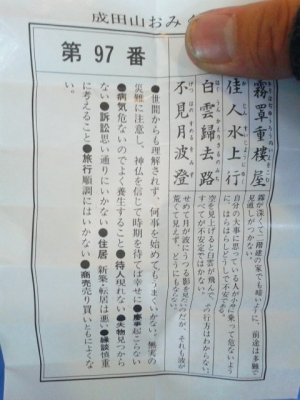 成田山おみく
第97番
霧罩重樓屋
佳人水上行
白雲歸去路
不見月波澄
霧が深くて二階建の家でも暗いように、前途は多難で
見通しがつかない。
自分の大事に思っている人が小舟に乗って危ないよう
空を見上げると白雲が飛んで、その行方はわからない。
すべてが不安定ではかない。
せめて月が波にうつる影を見たいのだが、それも波が
荒くて見えず、どうにもならない。
●世間からも理解されず、何事を始めてもうまくいかない。無実の
災難に注意し、神仏を信じて時期を待てば幸せに●慶事起こらない
●病気危ないのでよく養生すること●待人現れない●失物見つから
ない●訴訟思い通りにはいかない●住居 新築・転居は悪い●縁談慎重
に考えること●旅行順調にはいかない●商売売り買いともによくな
い。